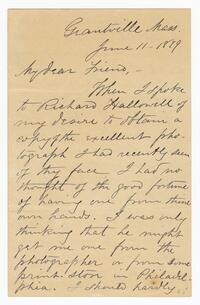 Grantville Mass.
June 11 - 1889
My dear Friend, -
When I spoke
to Richard Hallowell of
my desire to obtain a
copy of the excellent pho-
tograph I had recently seen
of thy face I had no
thought of the good fortune
of having one from thine
own hands. I was only
thinking that he might
get me one from the
photographer or from some
print-store in Philadel-
phia. I should hardly